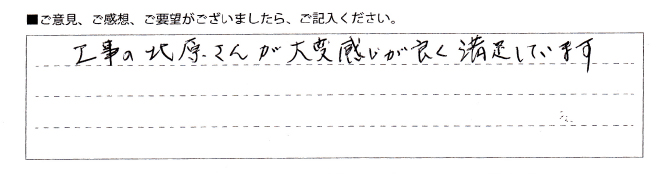 ■ご意見、ご感想、ご要望がございましたら、ご記入ください。
工事の北原さんが大変感じが良く満足しています